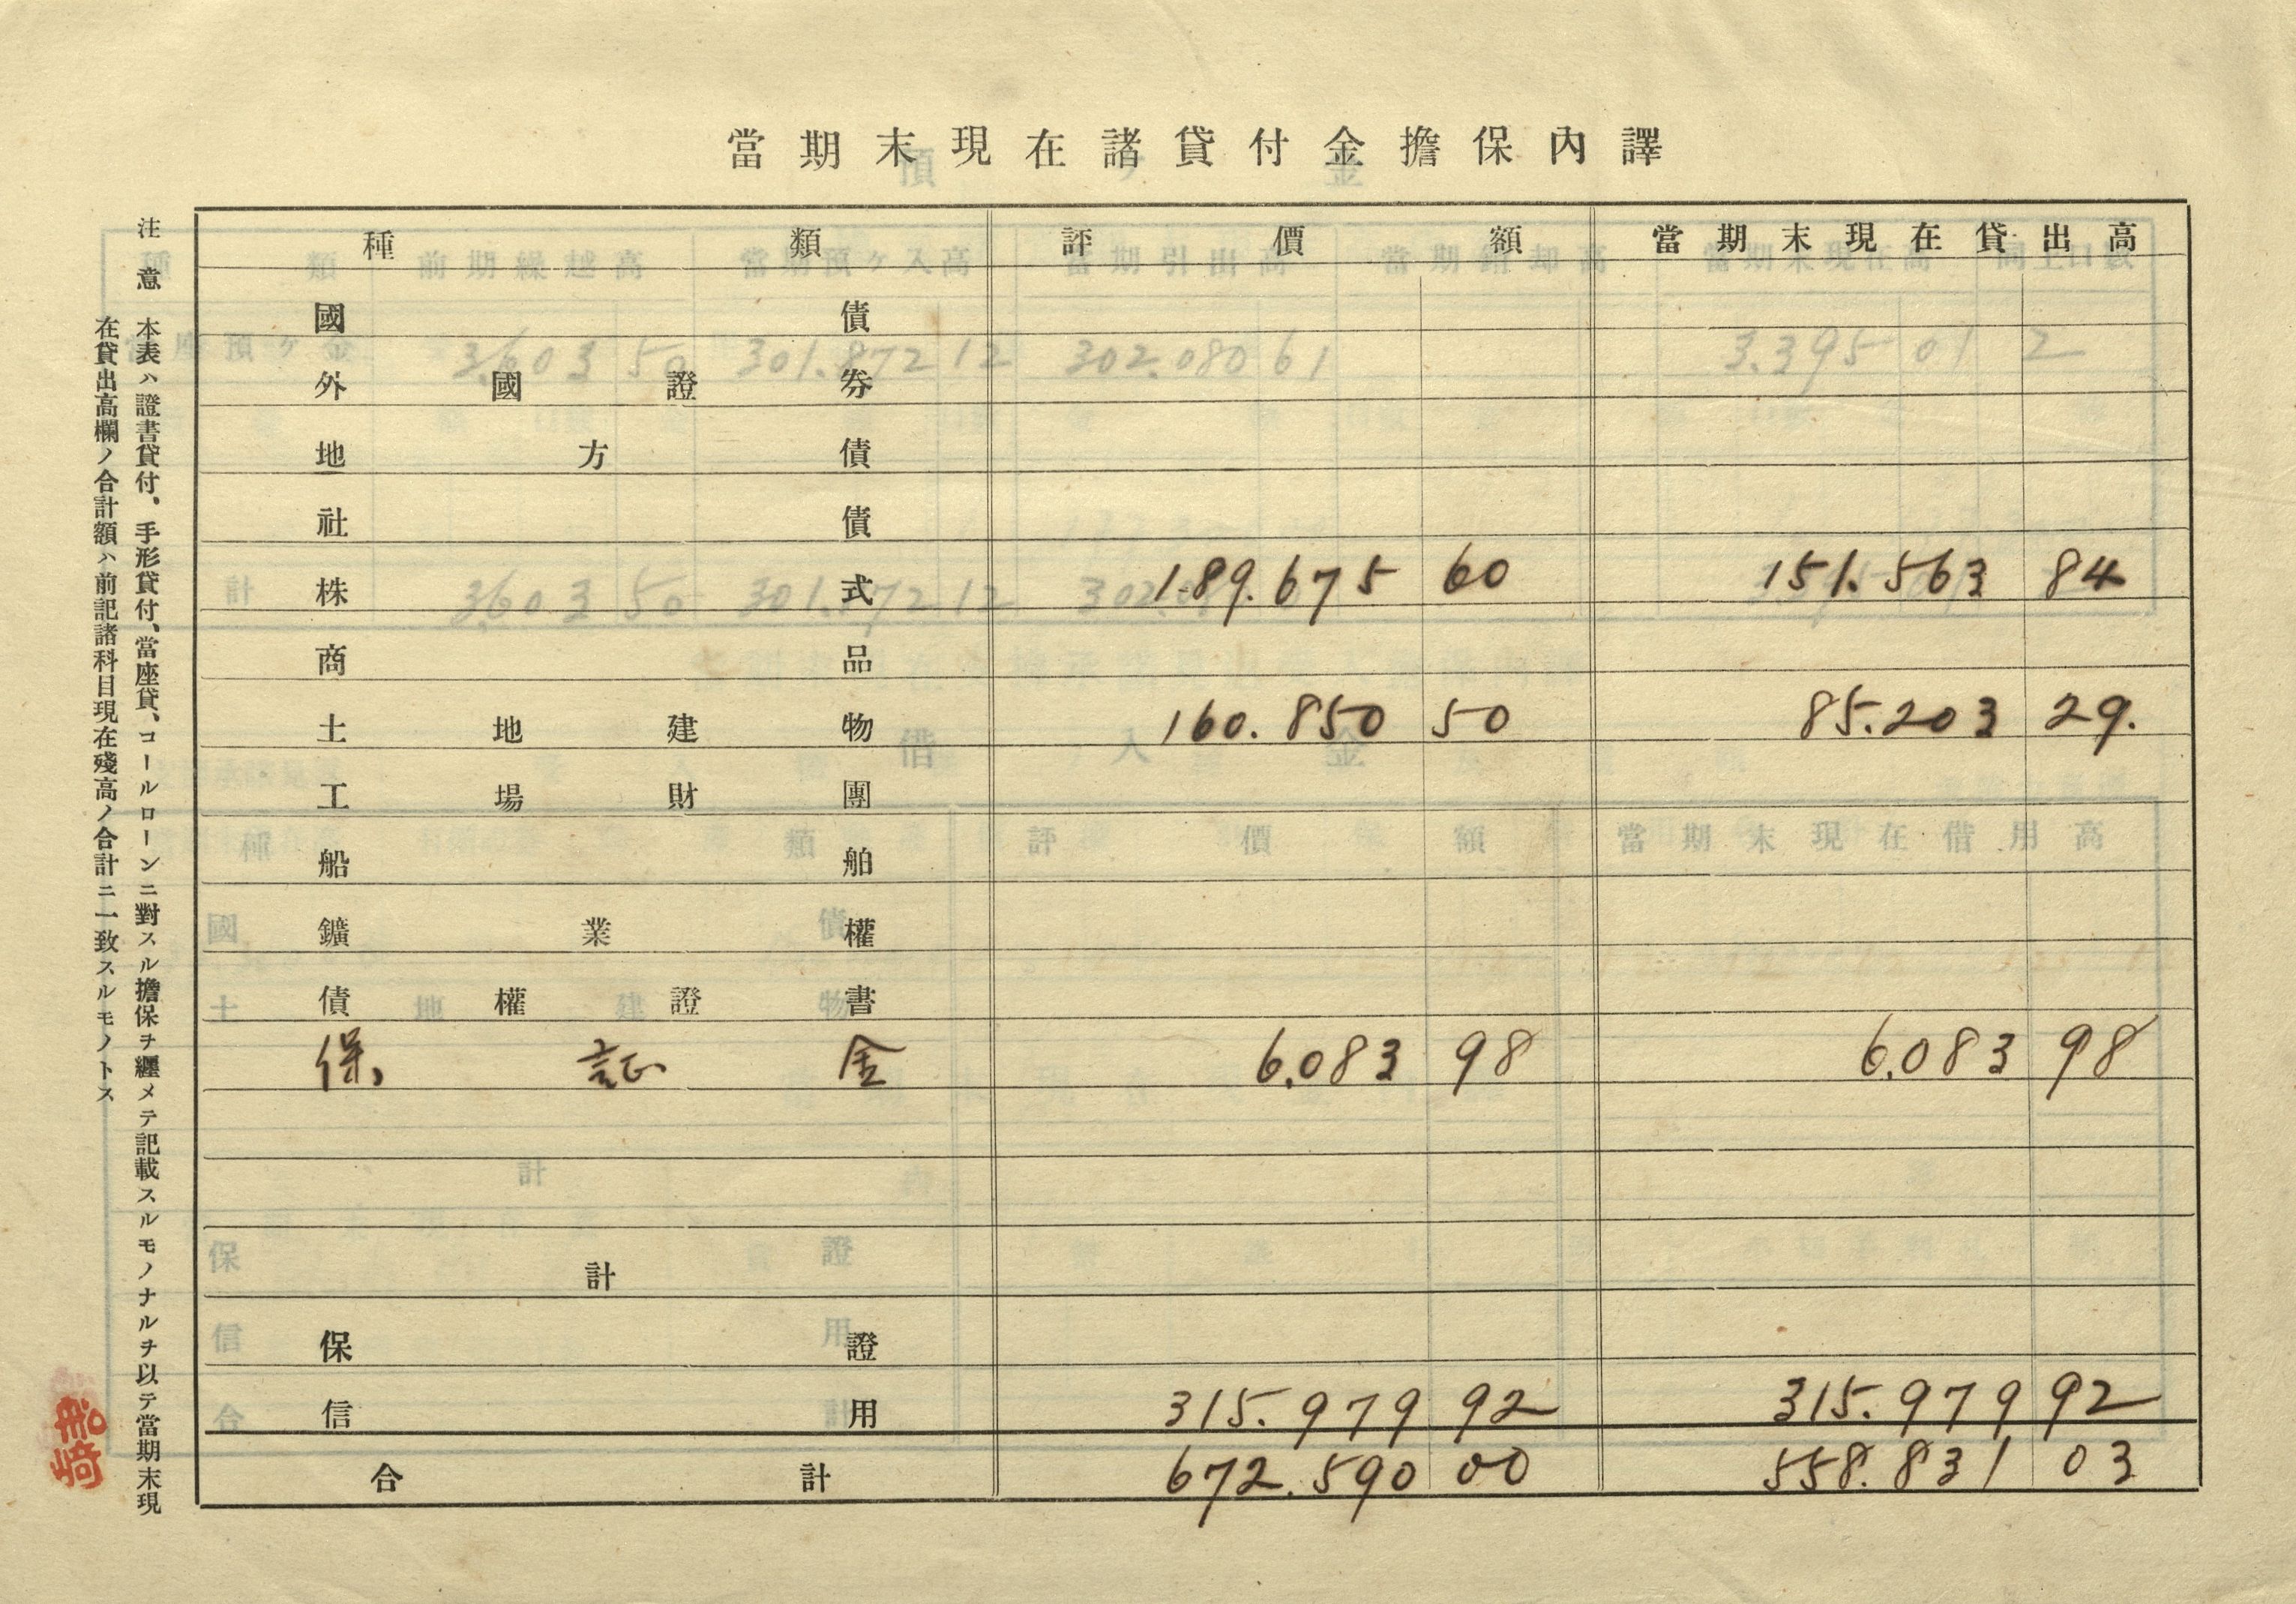 當期末現在諸貸付金擔保內譯
種類 評價額 當期末現在貸出高
國債
外國證券
地方債
社債
株式 189.675 60 151.563 84
商品
土地建物 160.850 50 85.203 29.
工場財團
船舶
鑛業權
債權證書
保証金 6.083 98 6.083 98
計
保證
信用 315.979 92 315.979 92
合計 672.590 00 558.831 03
注意 本表ハ證書貸付、手形貸付、當座貸、コールローンニ對スル擔保ヲ纒メテ記載スルモノナルヲ以テ當期末現
在貸出高欄ノ合計額ハ前記諸科目現在殘高ノ合計ニ一致スルモノトス